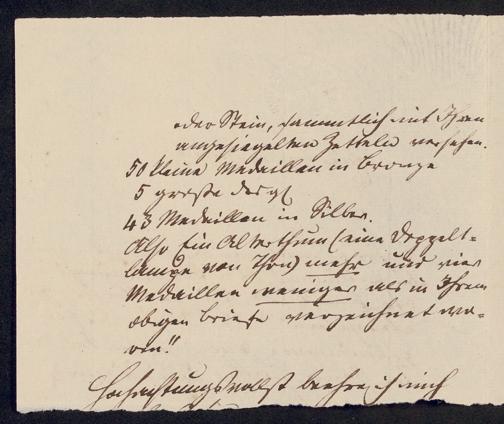 oder Stein, sammtlich mit Ihren
angesiegelten Zetteln versehen.
50 kleine Medaillen in Bronze
5 große desgl
43 Medaillen in Silber.
Also Ein Alterthum (eine Doppelt-
lampe von Thon) mehr und vier
Medaillen weniger als in Ihrem
obigen Briefe verzeichnet wa-
ren."
Hochachtungsvollst beehre ich mich